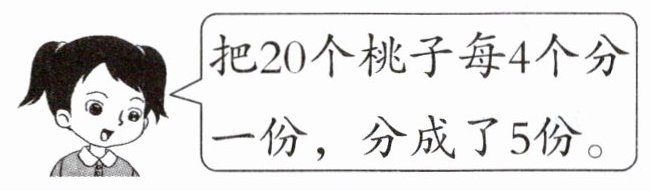 把20个桃子每4个分
一份，分成了5份。